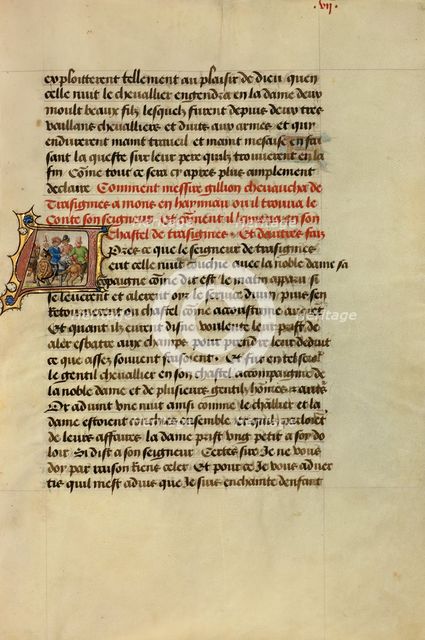 .vij.
exploitterent tellement au plaisir de dieu quen
celle nuit le chevallier engendra en la dame deux
moult beaux filz lesquelz furent depuis deux tres
vaillans chevalliers et duits aux armes et qui
endurerent maint traveil et maint mesaise en fai
sant la queste sur leur pere quilz trouverent en la
fin Come tout ce sera cy apres plus amplement
declaire Comment messire gillion chevaucha de
Trasignies a mons en haynnau ou il trouva le
Conte son seigneur Et coment il lemena en son
Chastel de trasignies Et dautres faiz
Apres ce que le seigneur de trasignies
eut celle nuit couchie avec la noble dame sa
compaigne come dit est le matin apparu si
se leverent et alerent oyr le service divin puis sen
Retournerent ou chastel come acoustume
Et quant ilz eurent disne voulente leur prist de
aler esbatre aux champs pour prendre leur deduit
ce que assez souvent faisoient Et fut en tel soulas
le gentil chevallier en son chastel accompaignie de
la noble dame et de plusieurs gentilz homes
Or advint une nuit ainsi comme le chllier et la
dame estoient couchies ensemble et quilz parloient
de leurs affaires la dame prist ung petit a soy do
loir Si dist a son seigneur Certes sire Je ne vous
doy par raison riens celer Et pour ce Je vous adver
tis quil mest advis que Je suis enchainte denfant
heritage